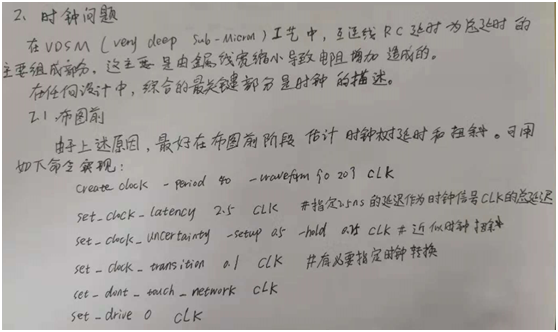 2、时钟问题
在VDSM (very deep Sub-Micron) 工艺中，互连线RC延时为总延时的
主要组成部分，这主要是由金属线宽缩小导致电阻增加造成的。
在任何设计中，综合的最关键部分是时钟的描述。
2.1 布图前
由于上述原因，最好在布图前阶段估计时钟树延时和扭斜。可用
如下命令实现：
create clock -period 40 -waveform {0 20} CLK
set_clock_latency 2.5 CLK #指定2.5ns的延迟作为时钟信号CLK的总延迟
set_clock_uncertainty -setup 0.5 -hold 0.25 CLK # 近似时钟扭斜
set_clock_transition 0.1 CLK #有必要指定时钟转换
set_dont_touch_network CLK
set_drive 0 CLK